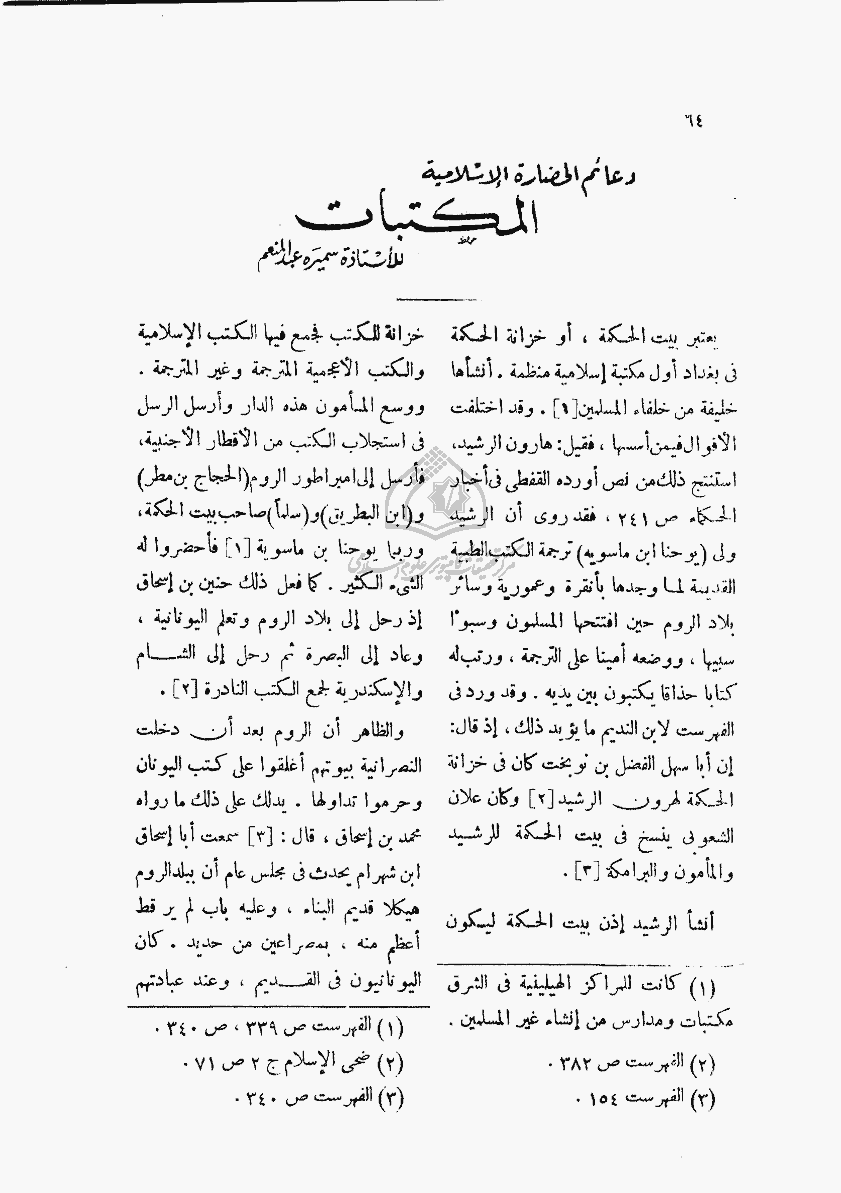 ٦٤
دعائم الحضارة الإسلامية
المكتبات
للأستاذة سميره عبد المنعم
يعتبر بيت الحكمة ، أو خزانة الحكمة
فى بغداد أول مكتبة إسلامية منظمة . أنشأها
خليفة من خلفاء المسلمين [١] . وقد اختلفت
الأقوال فيمن أسسها ، فقيل : هارون الرشيد،
استنتج ذلك من نص أورده القفطى فى أخبار
الحكماء ص ٢٤١ ، فقد روى أن الرشيد
ولى (يوحنا ابن ماسويه) ترجمة الكتب الطبية
القديمة لما وجدها بأنقرة وعمورية وسائر
بلاد الروم حين افتتحها المسلمون وسبوا
سبيها ، ووضعه أمينا على الترجمة ، ورتب له
كتابا حذاقا يكتبون بين يديه . وقد ورد فى
الفهرست لابن النديم ما يؤيد ذلك ، إذ قال:
إن أبا سهل الفضل بن نوبخت كان فى خزانة
الحكمة لهرون الرشيد [٢] وكان علان
الشعوبى ينسخ فى بيت الحكمة للرشيد
والمأمون والبرامكة [٣] .
أنشأ الرشيد إذن بيت الحكمة ليكون
(١) كانت للمراكز الهيلينية فى الشرق
مكتبات ومدارس من إنشاء غير المسلمين .
(٢) الفهرست ص ٣٨٢ .
(٣) الفهرست ١٥٤ .
خزانة للكتب فجمع فيها الكتب الإسلامية
والكتب الأعجمية المترجمة وغير المترجمة .
ووسع المأمون هذه الدار وأرسل الرسل
فى استجلاب الكتب من الأقطار الأجنبية،
فأرسل إلى امبراطور الروم (الحجاج بن مطر)
و(ابن البطريق) و(سلماً) صاحب بيت الحكمة،
وربما يوحنا بن ماسوية [١] فأحضروا له
الشىء الكثير . كما فعل ذلك حنين بن إسحاق
إذ رحل إلى بلاد الروم وتعلم اليونانية ،
وعاد إلى البصرة ثم رحل إلى الشام
والإسكندرية لجمع الكتب النادرة [٢] .
والظاهر أن الروم بعد أن دخلت
النصرانية بيوتهم أغلقوا على كتب اليونان
وحرموا تداولها . يدلك على ذلك ما رواه
محمد بن إسحاق ، قال : [٣] سمعت أبا إسحاق
ابن شهرام يحدث فى مجلس عام أن ببلد الروم
هيكلا قديم البناء ، وعليه باب لم ير قط
أعظم منه ، بمصراعين من حديد . كان
اليونانيون فى القديم ، وعند عبادتهم
(١) الفهرست ص ٣٣٩ ، ص ٣٤٠ .
(٢) ضحى الإسلام ج ٢ ص ٧١ .
(٣) الفهرست ص ٣٤٠ .